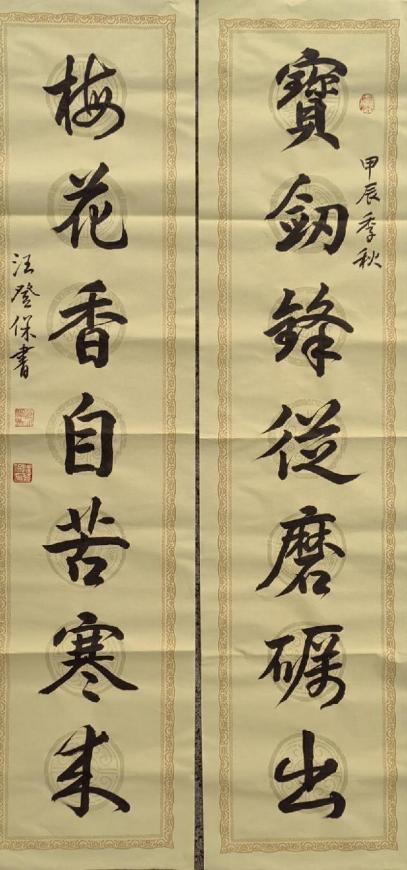 寶劔鋒從磨礪出
甲辰季秋
梅花香自苦寒来
汪登保書